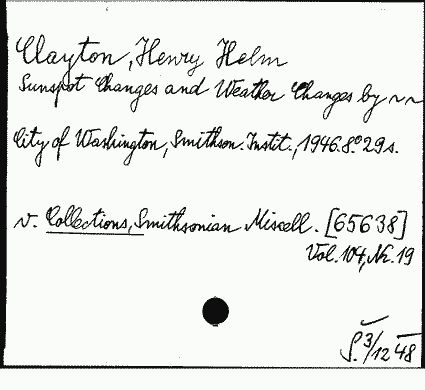 Clayton, Henry Helm
Sunspot Changes and Weather Changes by ~~
City of Washington, Smithson. Instit., 1946. 8° 29 s.
v. Collections, Smithsonian Miscell. [65638]
Vol. 104, Nr. 19
S. 3/12 48